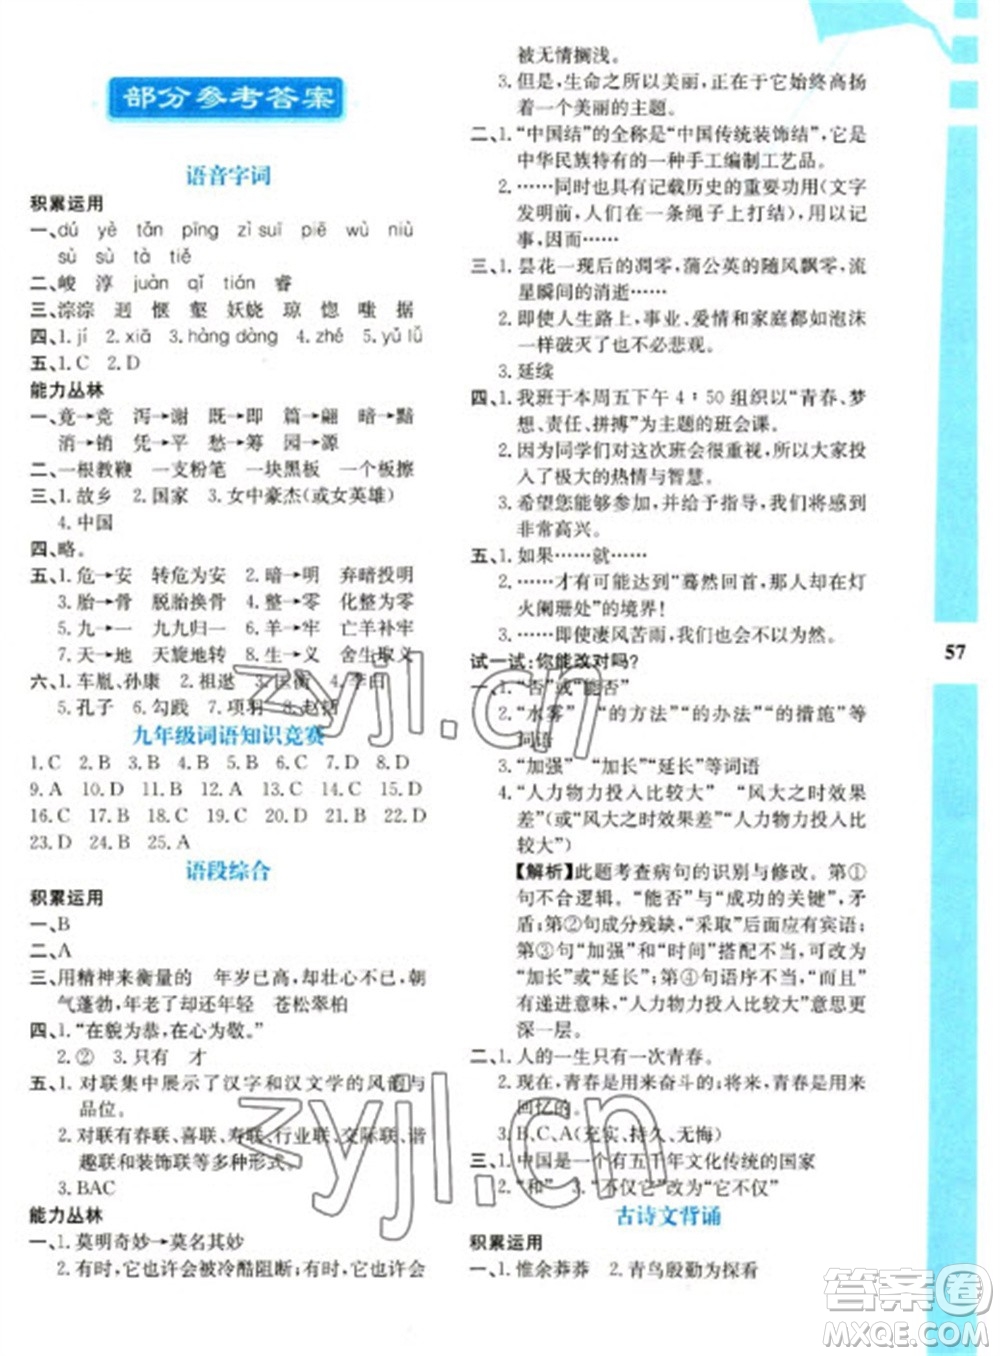 部分参考答案
语音字词
积累运用
一、dú yè tǎn pīng zì suī piē wù niù
sù sù tà tiě
二、峻 淳 juàn qǐ tián 睿
三、淙淙 迥 惬 壑 妖娆 琼 惚 嗤 据
四、1. jí 2. xiā 3. hàng dàng 4. zhé 5. yǔ lǚ
五、1. C 2. D
能力丛林
一、竟→竞 泻→谢 既→即 篇→翩 暗→黯
消→销 凭→平 愁→筹 园→源
二、一根教鞭 一支粉笔 一块黑板 一个板擦
三、1. 故乡 2. 国家 3. 女中豪杰(或女英雄)
4. 中国
四、略。
五、1. 危→安 转危为安 2. 暗→明 弃暗投明
3. 胎→骨 脱胎换骨 4. 整→零 化整为零
5. 九→一 九九归一 6. 羊→牢 亡羊补牢
7. 天→地 天旋地转 8. 生→义 舍生取义
六、1. 车胤、孙康 2. 祖逖 3. 匡衡 4. 李白
5. 孔子 6. 勾践 7. 项羽 8. 赵括
九年级词语知识竞赛
1. C 2. B 3. A 4. B 5. C 6. C 7. D 8. C
9. A 10. D 11. B 12. A 13. C 14. D 15. B
16. C 17. C 18. B 19. C 20. D 21. A 22. C
23. D 24. B 25. A
语段综合
积累运用
一、B
二、A
三、用精神来衡量的 年岁已高,却壮心不已,朝
气蓬勃,年老了却还年轻 苍松翠柏
四、1.“在貌为恭,在心为敬。”
2. ② 3. 只有 才
五、1. 对联集中展示了汉字和汉文学的风韵与
品位。
2. 对联有春联、喜联、寿联、行业联、交际联、谐
趣联和装饰联等多种形式。
3. BAC
能力丛林
一、1. 莫明奇妙→莫名其妙
2. 有时,它也许会被冷酷阻断;有时,它也许会
被无情搁浅。
3. 但是,生命之所以美丽,正在于她始终高扬
着一个美丽的主题。
二、1.“中国结”的全称是“中国传统装饰结”,它是
中华民族特有的一种手工编制工艺品。
2. ……同时也具有记载历史的重要功用(文字
发明前,人们在一条绳子上打结),用以记
事,因而……
三、1. 昙花一现后的凋零、蒲公英的随风飘零、流
星瞬间的消逝……
2. 即使人生路上,事业、爱情和家庭都如泡沫
一样破灭了也不必悲观。
3. 延续
四、1. 我班于本周五下午 4∶50 组织以“青春、梦
想、责任、拼搏”为主题的班会课。
2. 因为同学们对这次班会很重视,大家为此投
入了极大的热情与智慧。
3. 希望您能够参加,并给予指导,我们会感到
非常高兴。
五、1. 如果……就……
2. ……才有可能达到“蓦然回首,那人却在灯
火阑珊处”的境界!
3. ……即使凄风苦雨,我们也不以为然。
试一试:你能改对吗?
一、1.“否”或“能否”
2.“水雾” “的方法”“的办法”“的措施”等
词语
3.“加强” “加长”“延长”等词语
4.“人力物力投入比较大” “风大时效果
差”(或“风大时效果差”“人力物力投入比
较大”)
【解析】此题考查病句的识别与修改。第①
句不合逻辑。“能否”与“成功的关键”,矛
盾;第②句成分残缺,“采取”后面应有宾语;
第③句“加强”和“时间”搭配不当,可改为
“加长”或“延长”;第④句语序不当,“而且”
有递进意味,“人力物力投入比较大”意思更
深一层。
二、1. 人的一生只有一次青春。
2. 现在,青春是用来奋斗的;将来,青春是用来
回忆的。
3. B、C、A(充实、持久、无悔)
三、1. 中国是有五千年文化传统的国家
2.“和” “不仅它”改为“它不仅”
古诗文背诵
积累运用
一、1. 惟余莽莽 2. 青鸟殷勤为探看
57
zyjl.cn
zyjl.cn
答案圈
MXQE.COM